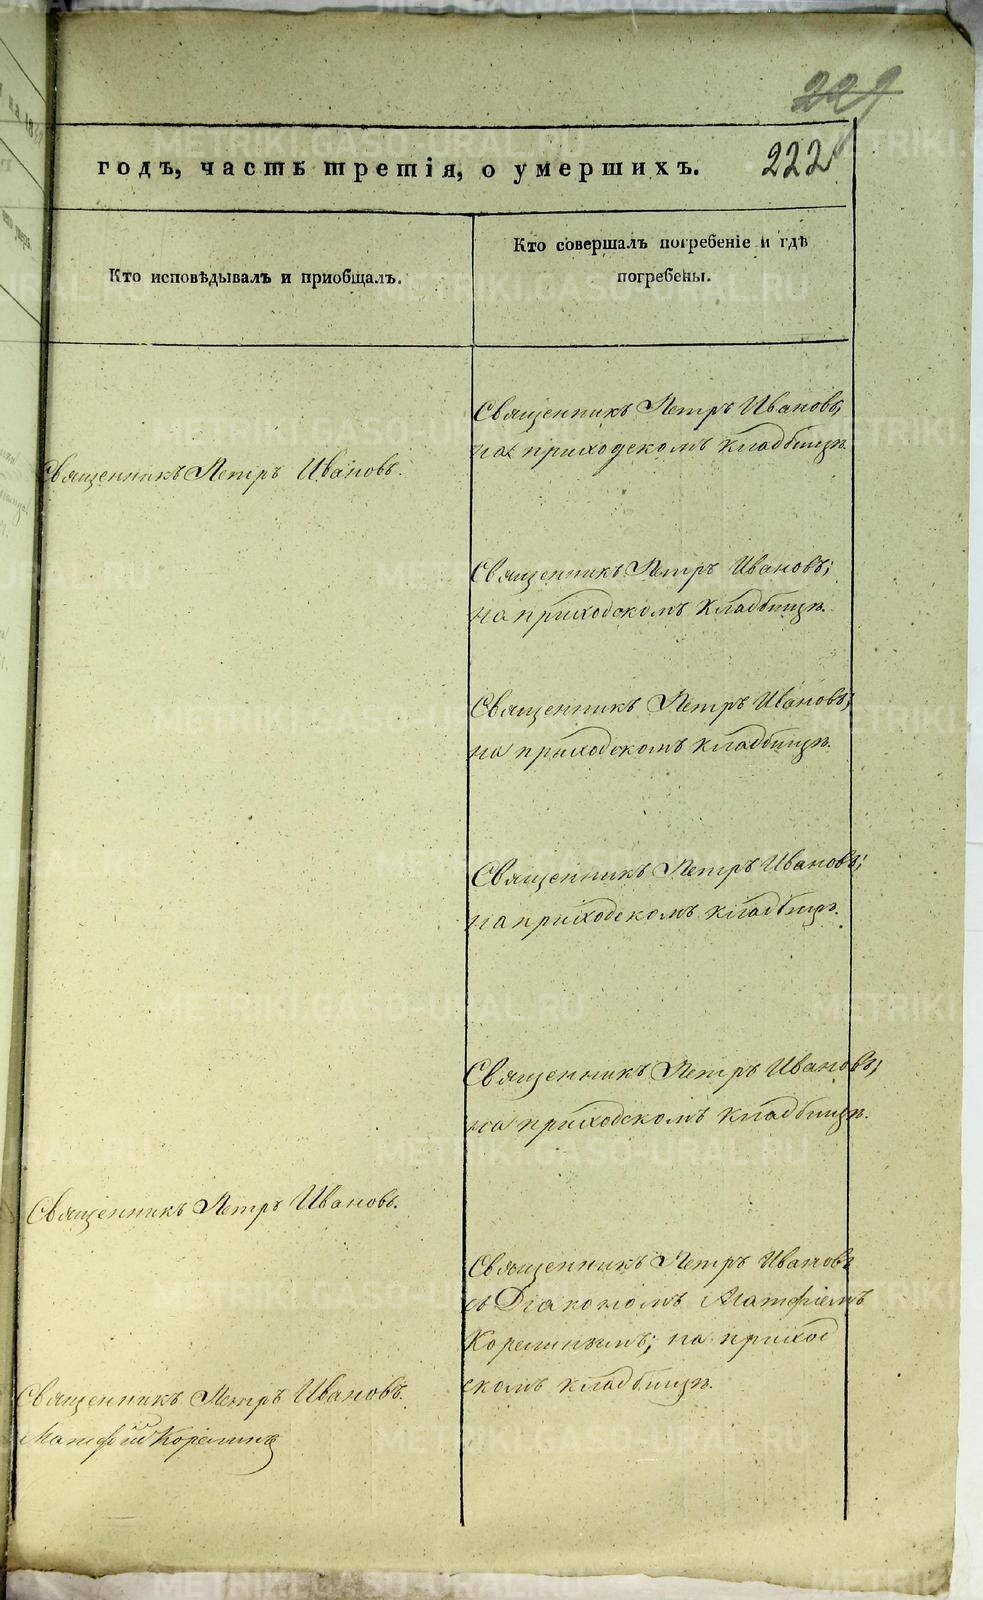 229
222
годъ, часть третія, о умершихъ.
Кто исповѣдывалъ и приобщалъ.
Кто совершалъ погребеніе и гдѣ
погребены.
Священникъ Петръ Ивановъ,
на приходскомъ кладбищѣ.
Священникъ Петръ Ивановъ.
Священникъ Петръ Ивановъ;
на приходскомъ кладбищѣ.
Священникъ Петръ Ивановъ;
на приходскомъ кладбищѣ.
Священникъ Петръ Ивановъ;
на приходскомъ кладбищѣ.
Священникъ Петръ Ивановъ;
на приходскомъ кладбищѣ.
Священникъ Петръ Ивановъ.
Священникъ Петръ Ивановъ
съ Діакономъ Матфіемъ
Корелинымъ; на приход
скомъ кладбищѣ.
Священникъ Петръ Ивановъ.
Матфій Корелинъ
METRIKI.GASO-URAL.RU